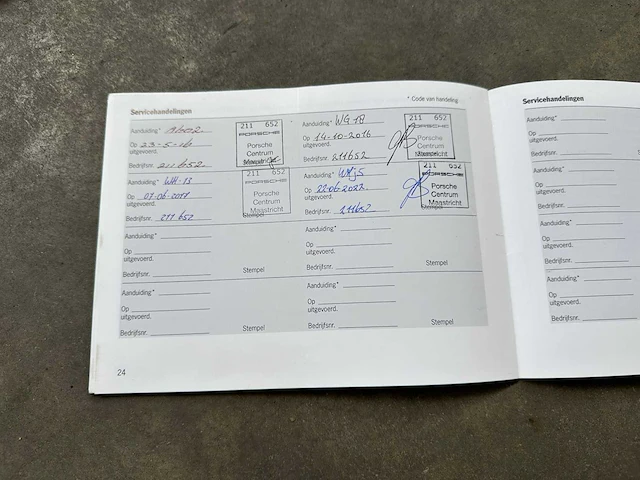 * Code van handeling
Servicehandelingen
Aanduiding*
Op 23-5-16
uitgevoerd.
Bedrijfsnr. 211652.
211 652
PORSCHE
Porsche
Centrum
Maastricht
Aanduiding* WG 18
Op 14-10-2016
uitgevoerd.
Bedrijfsnr. 211652
211 652
PORSCHE
Porsche
Centrum
Aanduiding* WH-13
Op 07-06-2017
uitgevoerd.
Bedrijfsnr. 211 652
211 652
PORSCHE
Porsche
Centrum
Maastricht
Stempel
Aanduiding*
Op 22.06.2022.
uitgevoerd.
Bedrijfsnr. 211652
211 652
PORSCHE
Porsche
Centrum
Maastricht
Stempel
Aanduiding*
Op
uitgevoerd.
Bedrijfsnr.
Stempel
Aanduiding*
Op
uitgevoerd.
Bedrijfsnr.
Stempel
Aanduiding*
Op
uitgevoerd.
Bedrijfsnr.
Stempel
Aanduiding*
Op
uitgevoerd.
Bedrijfsnr.
Stempel
24
Servicehandelingen
Aanduiding*
Op
uitgevoerd.
Bedrijfsnr.
Aanduiding*
Op
uitgevoerd.
Bedrijfsnr.
Aanduiding*
Op
uitgevoerd.
Bedrijfsnr.
Aanduiding*
Op
uitgevoerd.
Bedrijfsnr.